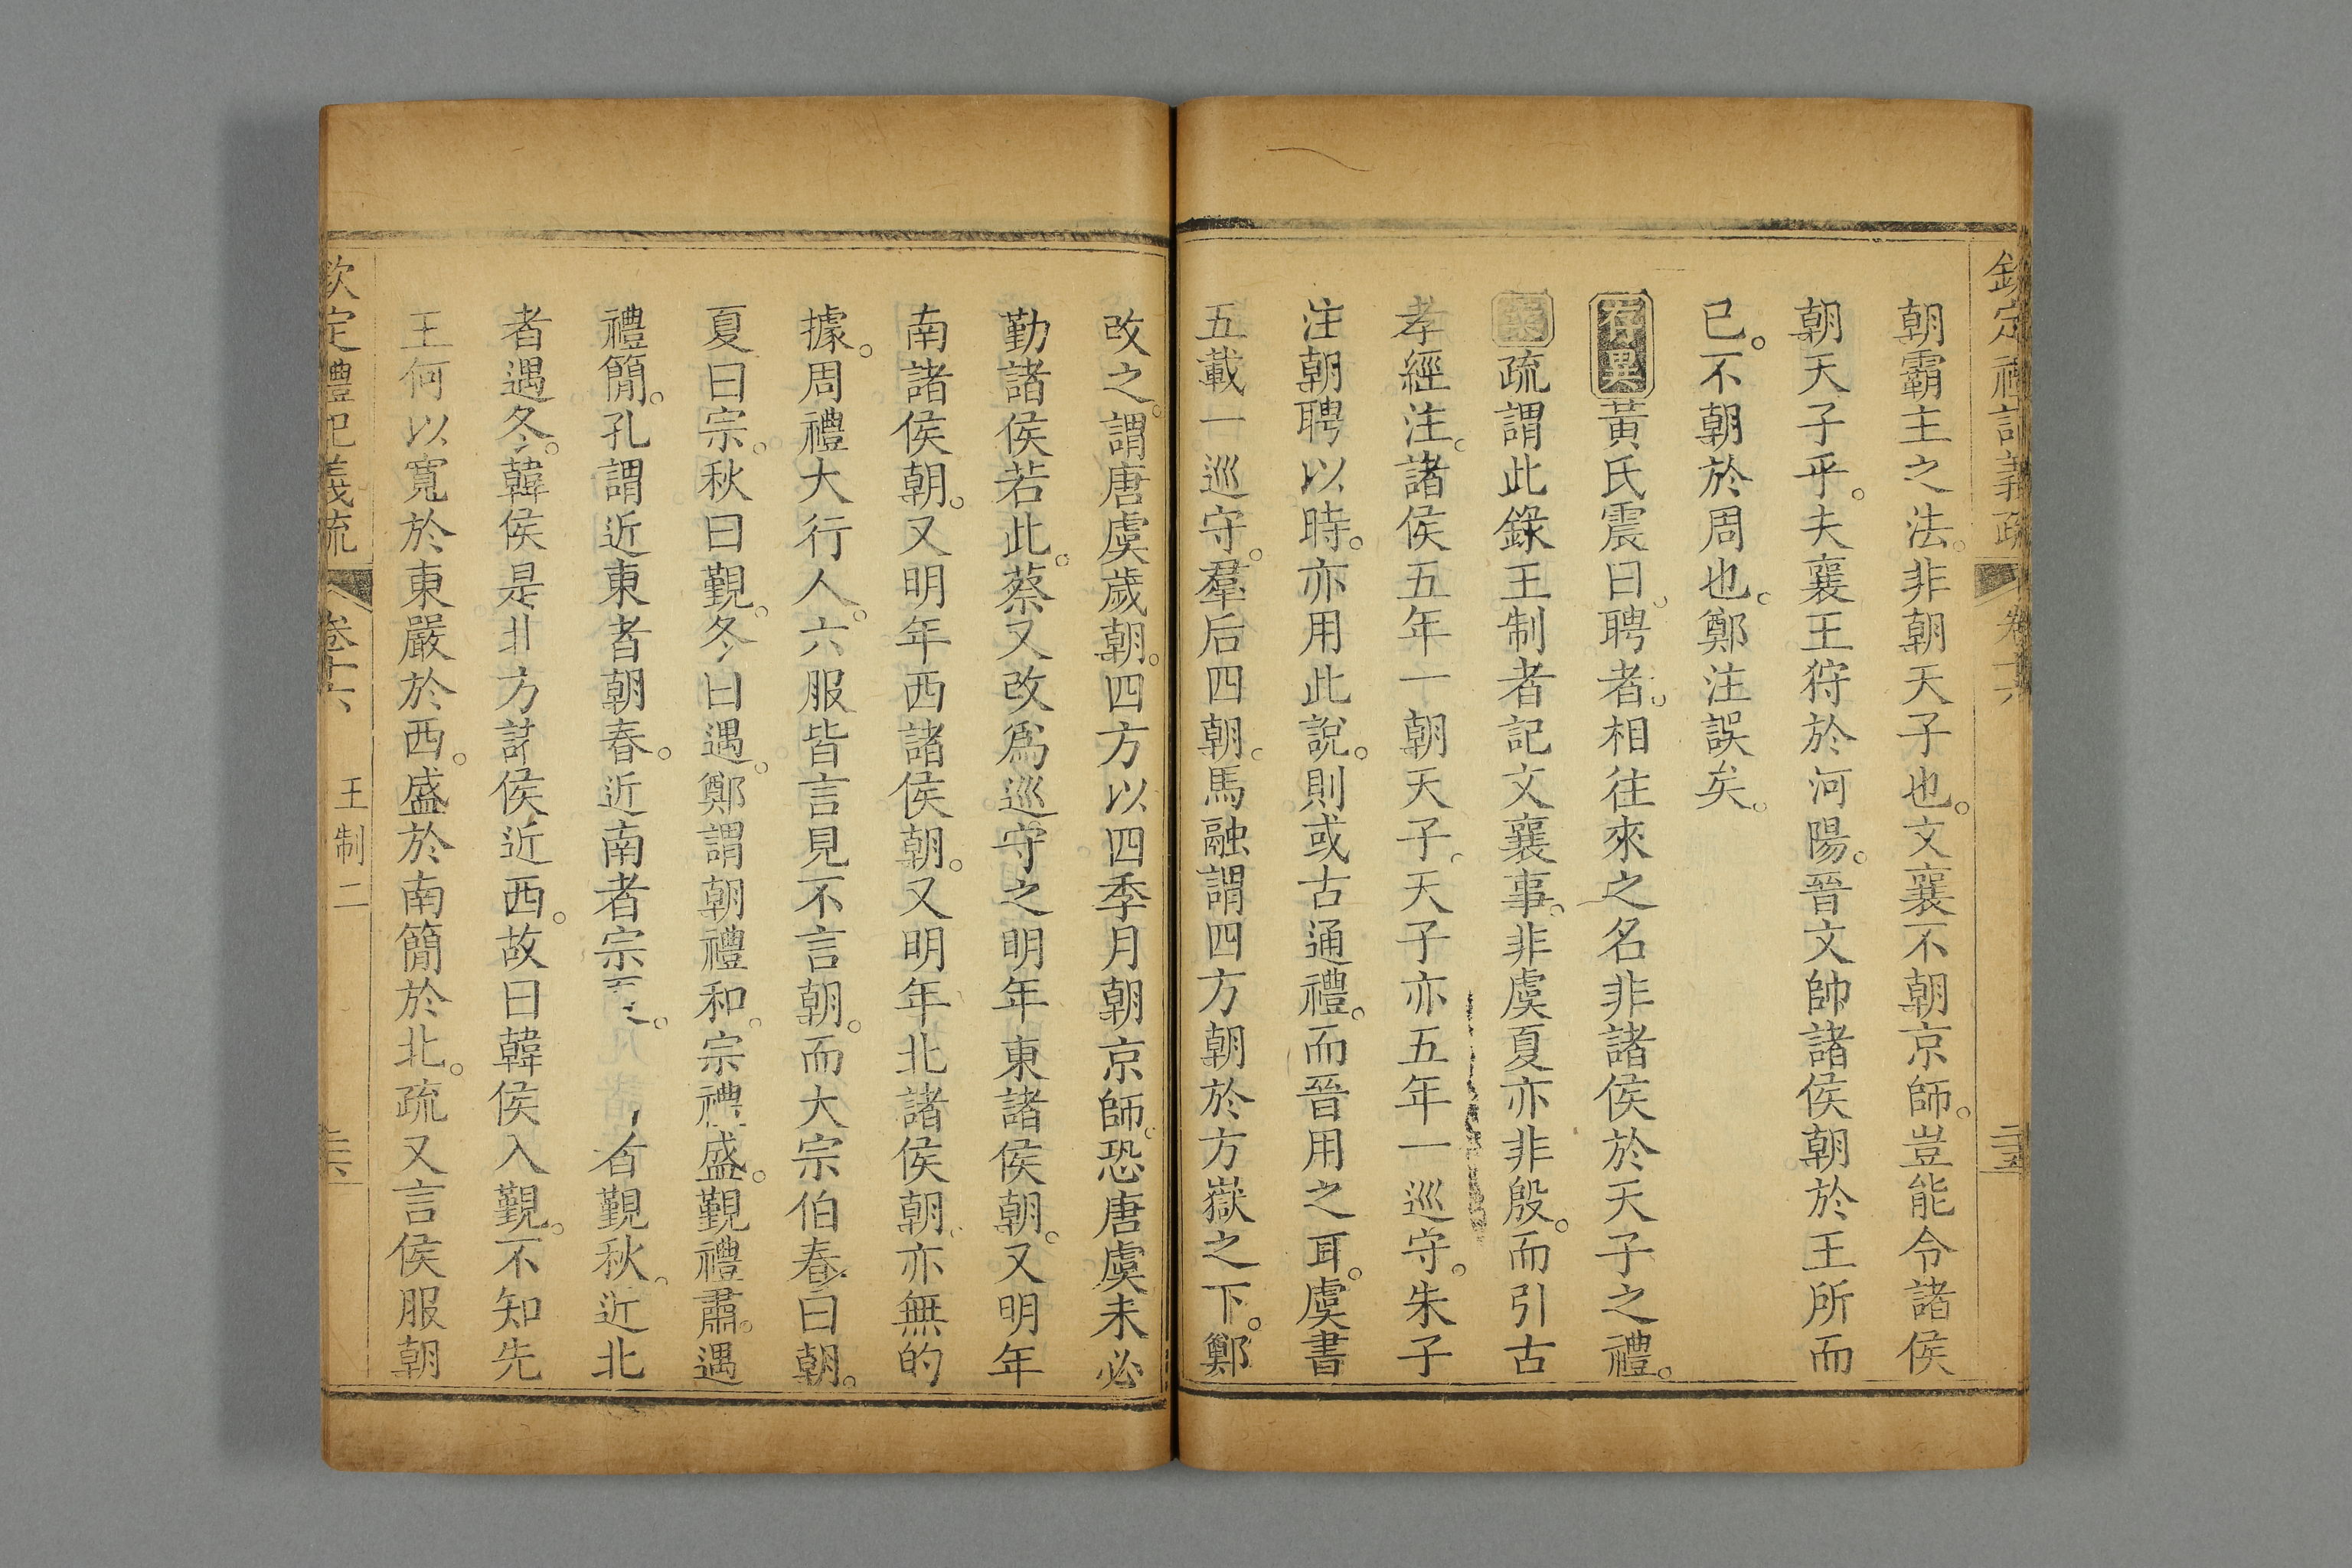 欽定禮記義疏 卷十六 三五
朝霸主之法。非朝天子也。文襄不朝京師。豈能令諸侯
朝天子乎。夫襄王狩於河陽。晉文帥諸侯朝於王所而
已。不朝於周也。鄭注誤矣。
存異黃氏震曰。聘者。相往來之名非諸侯於天子之禮。
案疏謂此錄王制者記文襄事。非虞夏亦非殷。而引古
孝經注。諸侯五年一朝天子。天子亦五年一巡守。朱子
注朝聘以時。亦用此說。則或古通禮。而晉用之耳。虞書
五載一巡守。羣后四朝。馬融謂四方朝於方嶽之下。鄭
改之。謂唐虞歲朝。四方以四季月朝京師。恐唐虞未必
勤諸侯若此。蔡又改爲巡守之明年東諸侯朝。又明年
南諸侯朝。又明年西諸侯朝。又明年北諸侯朝。亦無的
據。周禮大行人。六服皆言見不言朝。而大宗伯春曰朝。
夏曰宗。秋曰覲。冬曰遇。鄭謂朝禮和。宗禮盛。覲禮肅。遇
禮簡。孔謂近東者朝春。近南者宗夏。者覲秋。近北
者遇冬。韓侯是北方諸侯近西。故曰韓侯入覲。不知先
王何以寬於東嚴於西。盛於南簡於北。疏又言侯服朝
欽定禮記義疏 卷十六 王制二 三六